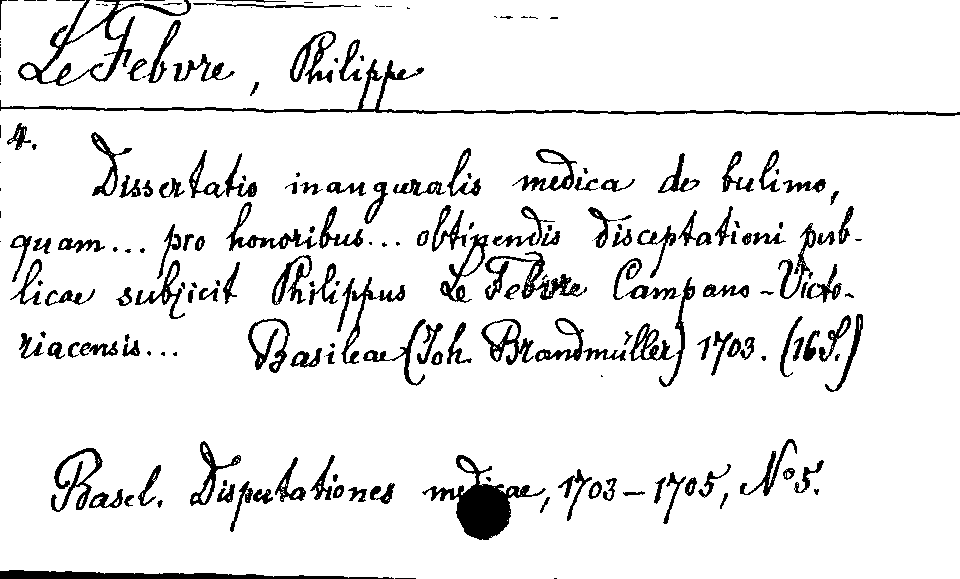 Le Febvre, Philippe
4.
Dissertatio inauguralis medica de bulimo,
quam... pro honoribus... obtinendis disceptationi pub-
licae subjicit Philippus Le Febvre Campano-Victo-
riacensis... Basileae (Joh. Brandmüller) 1703. (16 S.)
Basel. Disputationes medicae, 1703-1705, No 5.